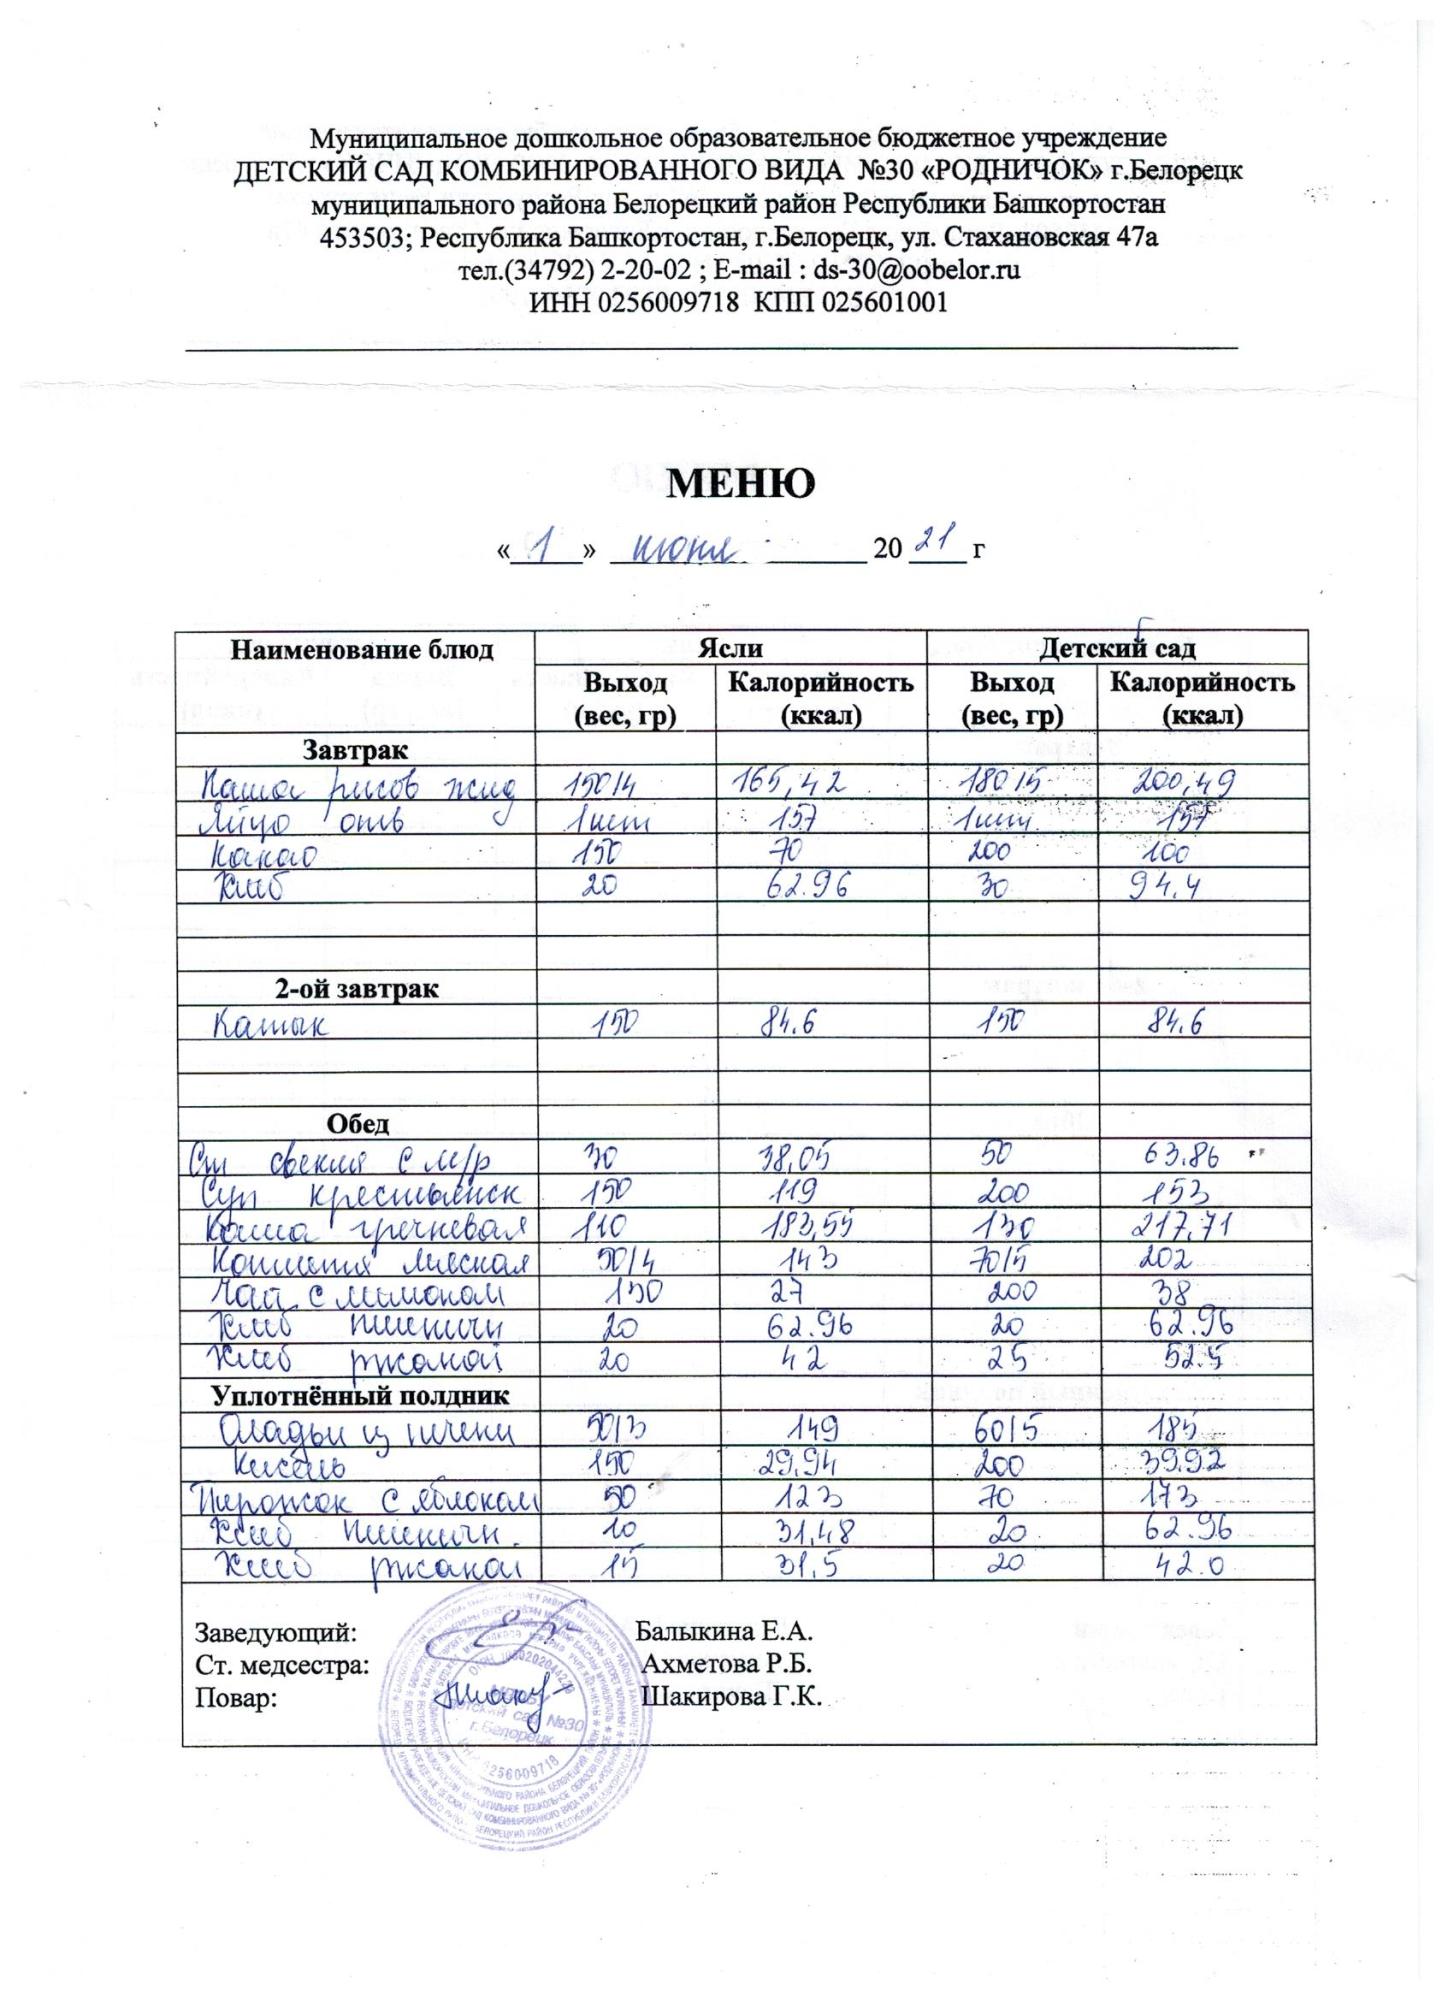 Муниципальное дошкольное образовательное бюджетное учреждение
ДЕТСКИЙ САД КОМБИНИРОВАННОГО ВИДА №30 «РОДНИЧОК» г.Белорецк
муниципального района Белорецкий район Республики Башкортостан
453503; Республика Башкортостан, г.Белорецк, ул. Стахановская 47а
тел.(34792) 2-20-02 ; E-mail : ds-30@oobelor.ru
ИНН 0256009718 КПП 025601001
МЕНЮ
«1» июня 20 21 г
Наименование блюд Ясли Детский сад
Выход (вес, гр) Калорийность (ккал) Выход (вес, гр) Калорийность (ккал)
Завтрак
Каша рисов жид 150/4 165,42 180/5 200,49
Яйцо отв 1шт 157 1шт 157
Какао 150 70 200 100
Хлеб 20 62.96 30 94,4
2-ой завтрак
Катык 150 84.6 150 84.6
Обед
свекла с м/р 30 38,05 50 63.86
Суп крестьянск 150 119 200 153
Каша гречневая 110 183,55 130 217,71
Котлета мясная 50/4 143 70/5 202
Чай с лимоном 150 27 200 38
Хлеб пшеничн 20 62.96 20 62.96
Хлеб ржаной 20 42 25 52.5
Уплотнённый полдник
Оладьи из печени 50/3 149 60/5 185
Кисель 150 29,94 200 39,92
Пирожок с яблоком 50 123 70 173
Хлеб пшеничн. 10 31,48 20 62.96
Хлеб ржаной 15 31,5 20 42.0
Заведующий: Балыкина Е.А.
Ст. медсестра: Ахметова Р.Б.
Повар: Шакирова Г.К.
детский сад №30
г. Белорецк
0256009718